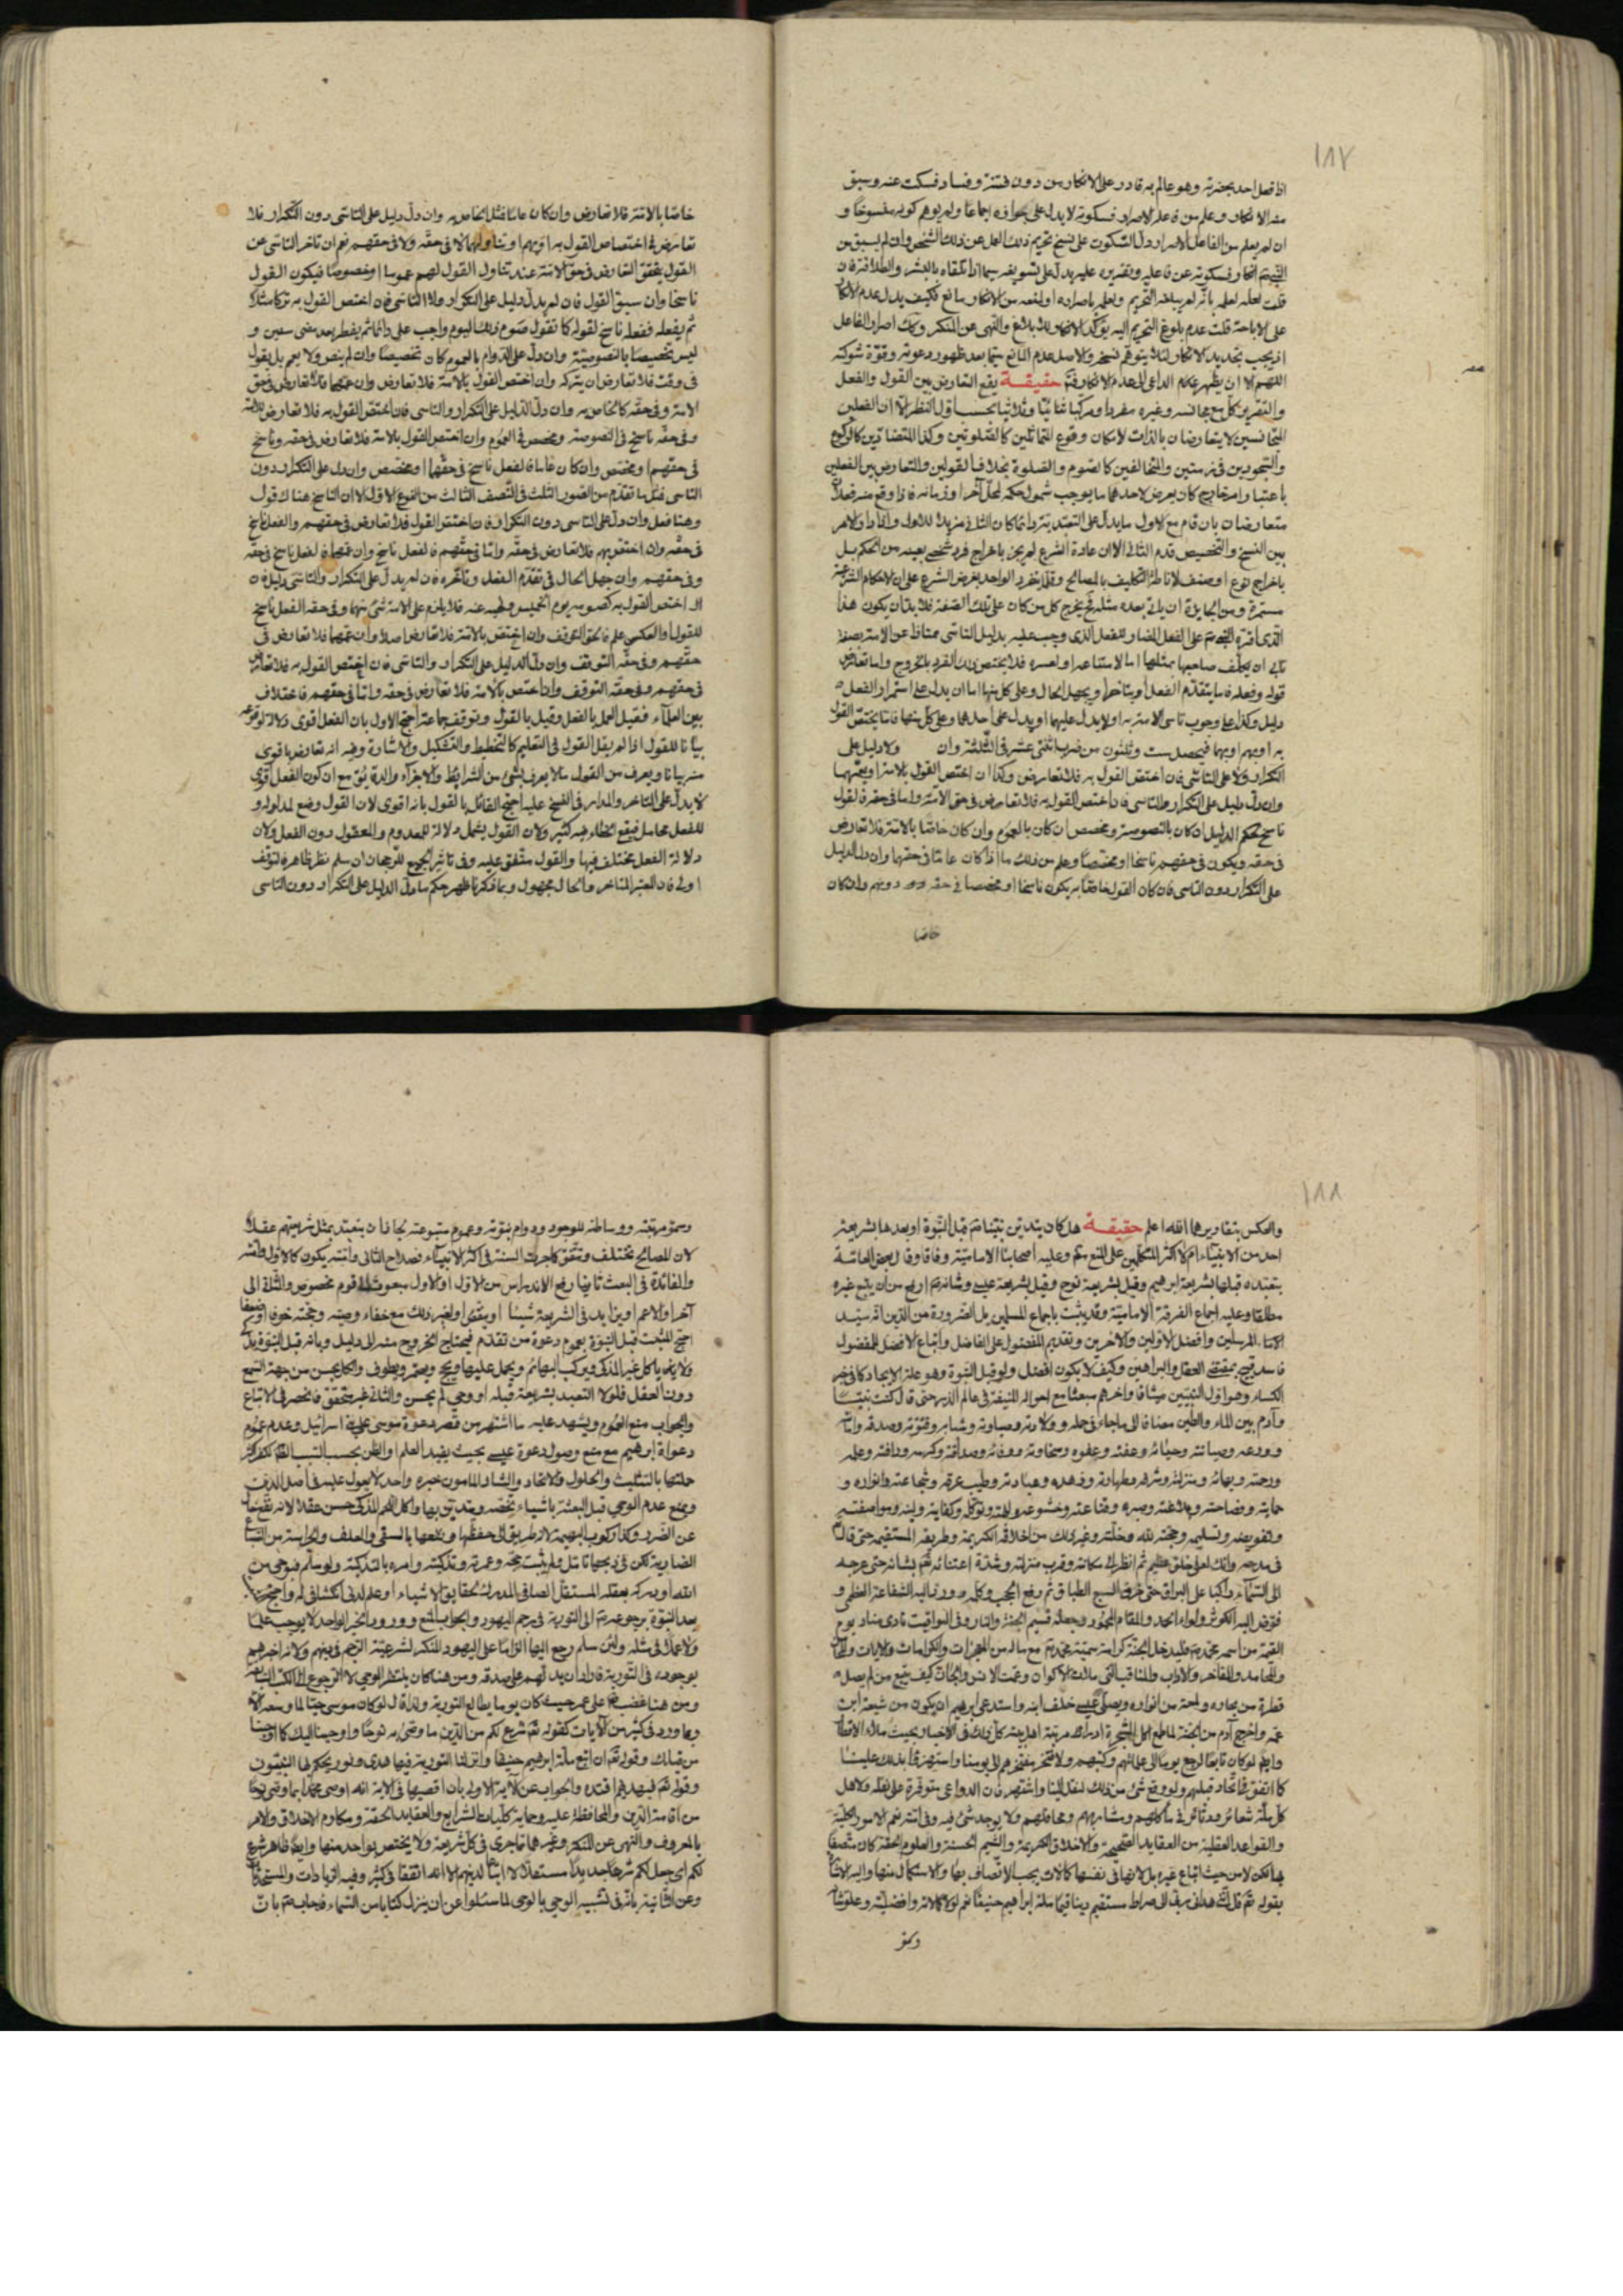 ١٨٧
اذا فعل احد بحضرته وهو عالم به قادر على الانكار من دون فتنة وفساد فسكت عنه وسبق
منه الانكار وعلم من فاعله الاصرار فسكوته لا يدل على جوازه اجماعا ولم يوهم كونه منسوخا و
ان لم يعلم من الفاعل الاصرار دل السكوت على نسخ تحريم ذلك الفعل عن ذلك الشخص وان لم يسبق من
قلت لعله لعلمه بانه لم يبلغه التحريم ولعلمه باصراره او لمنعه من الانكار مانع فكيف يدل عدم الانكار
على الاباحة قلت عدم بلوغ التحريم اليه يؤكد الانكار والابلاغ والنهى عن المنكر وكذا اصرار الفاعل
اذ يجب تجديد الانكار لئلا يتوهم نسخه والاصل عدم المانع سيما بعد ظهور دعوته وقوة شوكته
اللهم الا ان يظهر الداعى الى عدم الانكار حقيقة يقع التعارض بين القول والفعل
والتقرير كل مع مجانسه وغيره مفردا ومركبا ثنائيا وثلاثيا بحسب اول النظر الا ان الفعلين
المتجانسين لا يتعارضان بالذات لامكان وقوع المتماثلين كالصلوتين وكذا المتضادين كالركوع
والسجود فى زمنين والمتخالفين كالصوم والصلوة بخلاف القولين والتعارض بين الفعلين
باعتبار امر خارج كان يعرض لاحدهما ما يوجب شمول حكمه لمحل آخر او زمانه فاذا وقع منه فعلان
متعارضان بان قام مع الاول ما يدل على التعبد به دائما كان الثانى مزيلا للاول والامر
بين النسخ والتخصيص قدم الثانى لان عادة الشرع لم يجر باخراج فرد شخصى بعينه من الحكم بل
باخراج نوع او صنف لاناطة التكليف بالمصالح وقلما يتفرد الواحد بغرض الشرع على ان الاحكام الشرعية
مستمرة ومن الجايز ان ياتى بعده مثله فيخرج كل من كان على تلك الصفة فلا بد ان يكون هذا
قوله وفعله فاما يتقدم الفعل او يتاخر او يجهل الحال وعلى كل منها اما ان يدل على استمرار الفعل
دليل وكذا على وجوب تاسى الامة به او لا يدل عليهما او يدل على احدهما وعلى كل منها فاما يختص القول
به او بهم او بهما فيحصل ست وثلثون من ضرب اثنى عشر فى الثلثة وان ولا دليل على
التكرار ولا على التاسى فان اختص القول به فلا تعارض وكذا ان اختص القول بالامة او يعمهما
وان دل دليل على التكرار والتاسى فان اختص القول به فلا تعارض فى حق الامة واما فى حقه فالقول
ناسخ لحكم الدليل ان كان بالنصوصية ومخصص ان كان بالعموم وان كان خاصا بالامة فلا تعارض
فى حقه ويكون فى حقهم ناسخا او مخصصا وعلم من ذلك ما اذا كان عاما فى حقهما وان دل الدليل
على التكرار دون التاسى فان كان القول خاصا به يكون ناسخا او مخصصا فى حقه دونهم وان كان
خاصا
خاصا بالامة فلا تعارض وان كان عاما فمثل الخاص به وان دل دليل على التاسى دون التكرار فلا
تعارض فى اختصاص القول به او بهم او تناولهما لا فى حقه ولا فى حقهم نعم ان تاخر التاسى عن
القول يتحقق التعارض فى حق الامة عند تناول القول لهم عموما او خصوصا فيكون القول
ناسخا وان سبق القول فان لم يدل دليل على التكرار ولا التاسى فان اختص القول به
ثم يفعله ففعله ناسخ لقوله كما نقول صوم ذلك اليوم واجب على دائما ثم يفطر بعد مضى سنين و
ليس تخصيصا بالنصوصية وان دل على الدوام بالعموم كان تخصيصا وان لم ينص ولا يعم بل يقول
فى وقت فلا تعارض ان يتركه وان اختص القول بالامة فلا تعارض وان عمهما فلا تعارض فى حق
الامة وفى حقه كالخاص به وان دل الدليل على التكرار والتاسى فان اختص القول به فلا تعارض للامة
وفى حقه ناسخ فى النصوصية ومخصص فى العموم وان اختص القول بالامة فلا تعارض فى حقه وناسخ
فى حقهم او مخصص وان كان عاما فالفعل ناسخ فى حقهما او مخصص وان دل على التكرار دون
التاسى فمثل ما تقدم من الصور الثلث فى النصف الثالث من النوع الاول الا ان الناسخ هناك قول
وهنا فعل وان دل على التاسى دون التكرار فان اختص القول فلا تعارض فى حقهم والفعل ناسخ
فى حقه وان اختص بهم فلا تعارض فى حقه واما فى حقهم فالفعل ناسخ وان عمهما فالفعل ناسخ فى حقه
وفى حقهم وان جهل الحال فى تقدم الفعل وتاخره فان لم يدل على التكرار والتاسى دليل فان
اختص القول به كصومه يوم الخميس ونهيه عنه فلا يلزم على الامة شئ منهما وفى حقه الفعل ناسخ
للقول او العكس علم فالحق التوقف وان اختص بالامة فلا تعارض اصلا وان عمهما فلا تعارض فى
حقهم وفى حقه التوقف وان دل الدليل على التكرار والتاسى فان اختص القول به فلا تعارض
فى حقهم وفى حقه التوقف وان اختص بالامة فلا تعارض فى حقه واما فى حقهم فاختلاف
بين العلماء فقيل العمل بالفعل وقيل بالقول وتوقف جماعة احتج الاول بان الفعل اقوى دلالة لوقوعه
بيانا للقول اذا لم يف القول فى التعليم كالتخطيط والتشكيل والاشارة وفيه انه تعارض باقوى
لا يدل على التاخر والمدار فى النسخ عليه احتج القائل بالقول بانه اقوى لان القول وضع لمدلوله و
للفعل محامل فيقع الخطاء فيه كثير ولان القول يشمل دلالة للمعدوم والمعقول دون الفعل ولان
دلالة الفعل مختلف فيها والقول متفق عليه وفى تاثير الجميع للرجحان ان سلم نظر ظاهر فالتوقف
اولى فان المعتبر المتاخر والحال مجهول وبما ذكرنا ظهر حكم ما دل الدليل على التكرار دون التاسى
١٨٨
والعكس بتقاديرهما الله اعلم حقيقة هل كان يتدين نبينا قبل النبوة او بعدها بشريعة
احد من الانبياء ام لا اكثر المتكلمين على المنع وعليه اصحابنا الامامية وفاقا لبعض العامة
بتعبده قبلها بشريعة ابرهيم وقيل بشريعة نوح وقيل بشريعة عيسى وشانه ارفع من ان يتبع غيره
مطلقا وعليه اجماع الفرقة الامامية وقد ثبت باجماع المسلمين بل الضرورة من الدين انه سيد
المرسلين وافضل الاولين والآخرين وتقديم المفضول على الفاضل واتباع الافضل للمفضول
فاسد قبيح بمقتضى العقل والبراهين وكيف لا يكون افضل ولو قبل النبوة وهو علة الايجاد كما فى خبر
الكساء وهو اول النبيين ميثاقا وآخرهم مبعثا مع احواله المنيفة فى عالم الذر حتى قال كنت نبيا
وآدم بين الماء والطين مضافا الى ما جاء فى حمله وولادته وصباوته وشبابه وفتوته وصدقه وامانته
وورعه وصيانته وحيائه وعفته وعفوه وسخاوته ووفائه وصداقته وكرمه ورافته وعلمه
ورحمته وبهائه ومنزلته وشرفه وطهارته وزهده وعبادته وطيب عرقه وشجاعته وانواره و
حمايته وفصاحته وبلاغته وصبره وقناعته وخشوعه وتوكله وكفايته ولينه ومواصفته
وتفويضه وتسليمه ومحبته لله وخلته وغير ذلك من اخلاقه الكريمة وطريقه المستقيمة حتى قال
فى مدحه وانك لعلى خلق عظيم ثم انظر الى مكانته وقرب منزلته وشدة اعتنائه بشانه حتى عرجه
الى السماء راكبا على البراق حتى خرق السبع الطباق ثم رفع الحجب وكلمه الشفاعة العظمى و
فوض اليه الكوثر ولواء الحمد والمقام المحمود وجعله قسيم الجنة والنار وفى اليواقيت نادى مناد يوم
القيمة من اسمه محمد فليدخل الجنة كرامة سميه محمد مع ما له من المعجزات والكرامات والآيات
والمحامد والمفاخر والآداب والمناقب التى ملات الاكوان وعمت الانس والجان كيف يتبع من لم يصل
قطرة من بحاره ولمعة من انواره ويصلى عيسى خلف ابنه واستدعى ابرهيم ان يكون من شيعة ابن
عمه واخرج آدم من الجنة لما طمع اكل الشجرة ادراك مرتبة اهل بيته كل ذلك فى الاخبار بحيث ملاء الاقطار
وايضا لو كان تابعا لرجع يوما الى علمائهم وكتبهم ولافتخر مفتخرهم الى يومنا واستهزء بذلك علينا
كما اتفق فى اتحاد قبلتهم ولو وقع شئ من ذلك لنقل الينا واشتهر فان الدواعى متوفرة على نقله ولاهل
كل ملة شعائر ودثائر فى مآكلهم ومشاربهم ومحافلهم ولا يوجد شئ فيه وفى امته نعم الامور الكلية
والقواعد العقلية من العقايد الصحيحة والاخلاق الكريمة والشيم الحسنة والعلوم الحقة كان متصفا
بها لكن لا من حيث اتباع غيره بل لانها فى نفسها كمالات يجب الاتصاف بها والاستكمال منها واليه الاشارة
بقوله تعم قل اننى هدانى ربى الى صراط مستقيم دينا قيما ملة ابراهيم حنيفا نعم لولا كمالاته وافضليته وعلو شانه
وسمو
وسمو مرتبته ووساطته للوجود ودوام نبوته وعموم متبوعيته لجاز ان يتعبد بمثل شريعتهم عقلا
لان المصالح تختلف وتتفق كما جرت السنة فى اكثر الانبياء فصلاح الثانى وامته يكون كالاول وامته
والفائدة فى البعث ثانيا رفع الاندراس من الاول او الاول مبعوث الى قوم مخصوص والثانى الى
آخر او الاعم او يزايد فى الشريعة شيئا او ينقص او لغير ذلك مع خفاء وصيه وحجته خوفا
احتج المثبت قبل النبوة بعموم دعوة من تقدم فيحتاج الخروج منه الى دليل وبانه قبل النبوة
ولا ياكل غير المذكى ويركب البهائم ويحمل عليها ويحج ويعتمر ويطوف والكل يحسن من جهة السمع
دون العقل فلولا التعبد بشريعة قبله او وحى لم يحسن والثانى غير متحقق فانحصر فى الاتباع
والجواب منع العموم ويشهد عليه ما اشتهر من قصر دعوة موسى على بنى اسرائيل وعدم عموم
دعوة ابرهيم مع منع وصول دعوة عيسى بحيث يفيد العلم او الظن
جلتها بالتثليث والحلول والاتحاد والشاذ المامون خبره واحد لا يعول عليه فى اصل الدين
ويمنع عدم الوحى قبل البعثة باشياء تخصه ويتدين بها واكل اللحم المذكى حسن عقلا لانه نفع خال
عن الضرر وكذا ركوب البهيمة لانه طريق الى حفظها ونفعها بالسقى والعلف والحراسة من السباع
الضارية لكن فى ذبحها تامل ولم يثبت حجه وعمرته وتذكيته وامره بالتذكية ولو سلم فبوحى من
الله او بدركه بعقله المستقل الصافى المدرك لحقايق الاشياء او علم لدنى انكشافى له واحتج
بعد النبوة برجوعه الى التورية فى رجم اليهود والجواب المنع وورود الخبر الواحد لا يوجب علما
ولا عملا فى مثله ولئن سلم رجع اليها الزاما على اليهود المنكر لشرعية الرجم فى دينهم ولانه اخبرهم
بوجوده فى التورية فاراد ان يدلهم على صدقه ومن هنا كان ينتظر الوحى لا الرجوع الى الكتب السالفة
ومن هنا غضب على عمر حيث كان يوما يطالع التورية ولذا قال لو كان موسى حيا لما وسعه الا
وبما ورد فى كثير من الآيات كقوله تعم شرع لكم من الدين ما وصى به نوحا واوحينا اليك كما اوحينا
من قبلك وقوله تعم ان اتبع ملة ابرهيم حنيفا وانزلنا التورية فيها هدى ونور يحكم بها النبيون
وقوله تعم فبهديهم اقتده والجواب عن الآية الاولى بان اقصيها فى الابة انه اوصى محمدا بما وصى نوحا
من اقامة الدين والمحافظة عليه وحماية كليات الشرايع والعقايد الحقة ومكارم الاخلاق والامر
بالمعروف والنهى عن المنكر وغيرهما مما جرى فى كل شريعة ولا يختص بواحد منها وايضا ظاهر شرع
لكم اى جعل لكم شرعا جديدا مستقلا لا اتباعا لدينهم الا انه اتفقا فى كثير وفيه الزيادات والمستحدثات
وعن الثانية بانه فى تشبيه الوحى بالوحى لما سئلوا عن ان ينزل كتابا من السماء فجاب بان